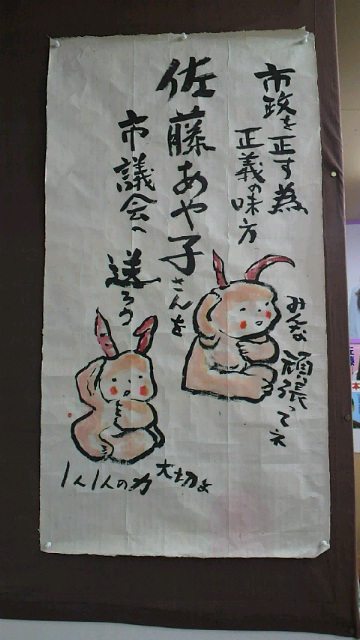 市政を正す為
正義の味方
佐藤あや子さんを
市議会へ
送ろう
みんな頑張ってネ
1人1人の力
大切よ